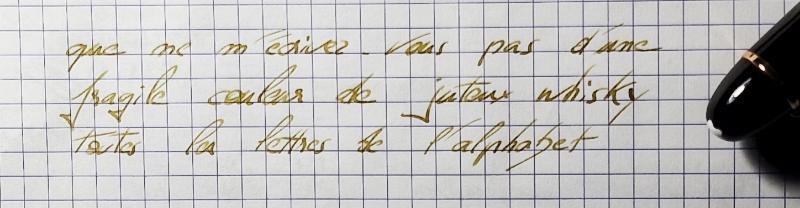 que ne m'écrivez-vous pas d'une
fragile couleur de juteux whisky
toutes les lettres de l'alphabet